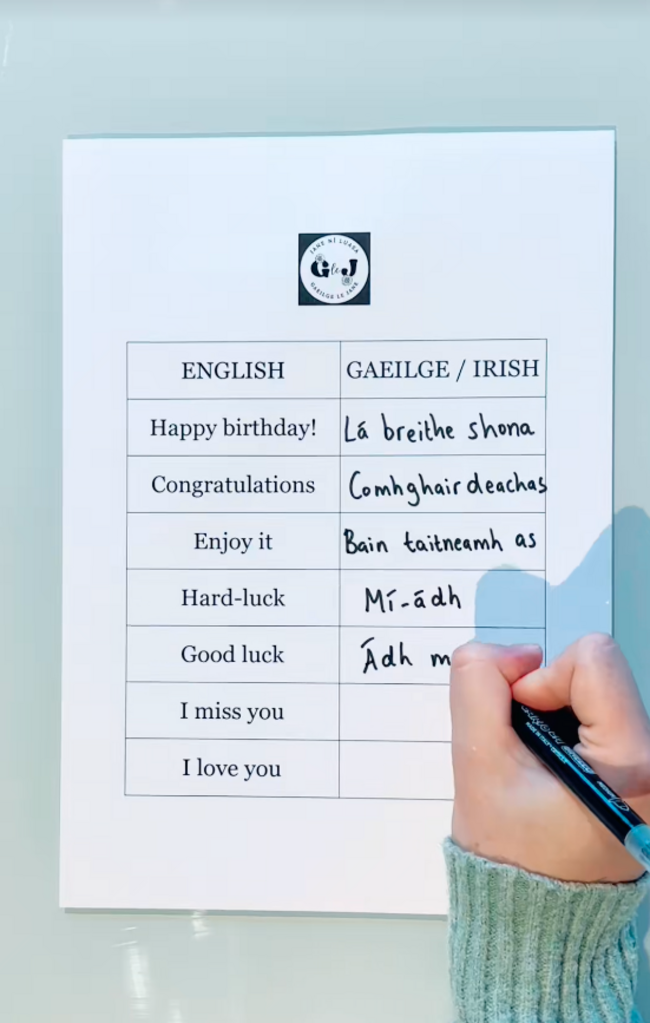 JANE NÍ LUASA
G le J
GAEILGE LE JANE
ENGLISH GAEILGE / IRISH
Happy birthday! Lá breithe shona
Congratulations Comhghairdeachas
Enjoy it Bain taitneamh as
Hard-luck Mí-ádh
Good luck Ádh m
I miss you
I love you